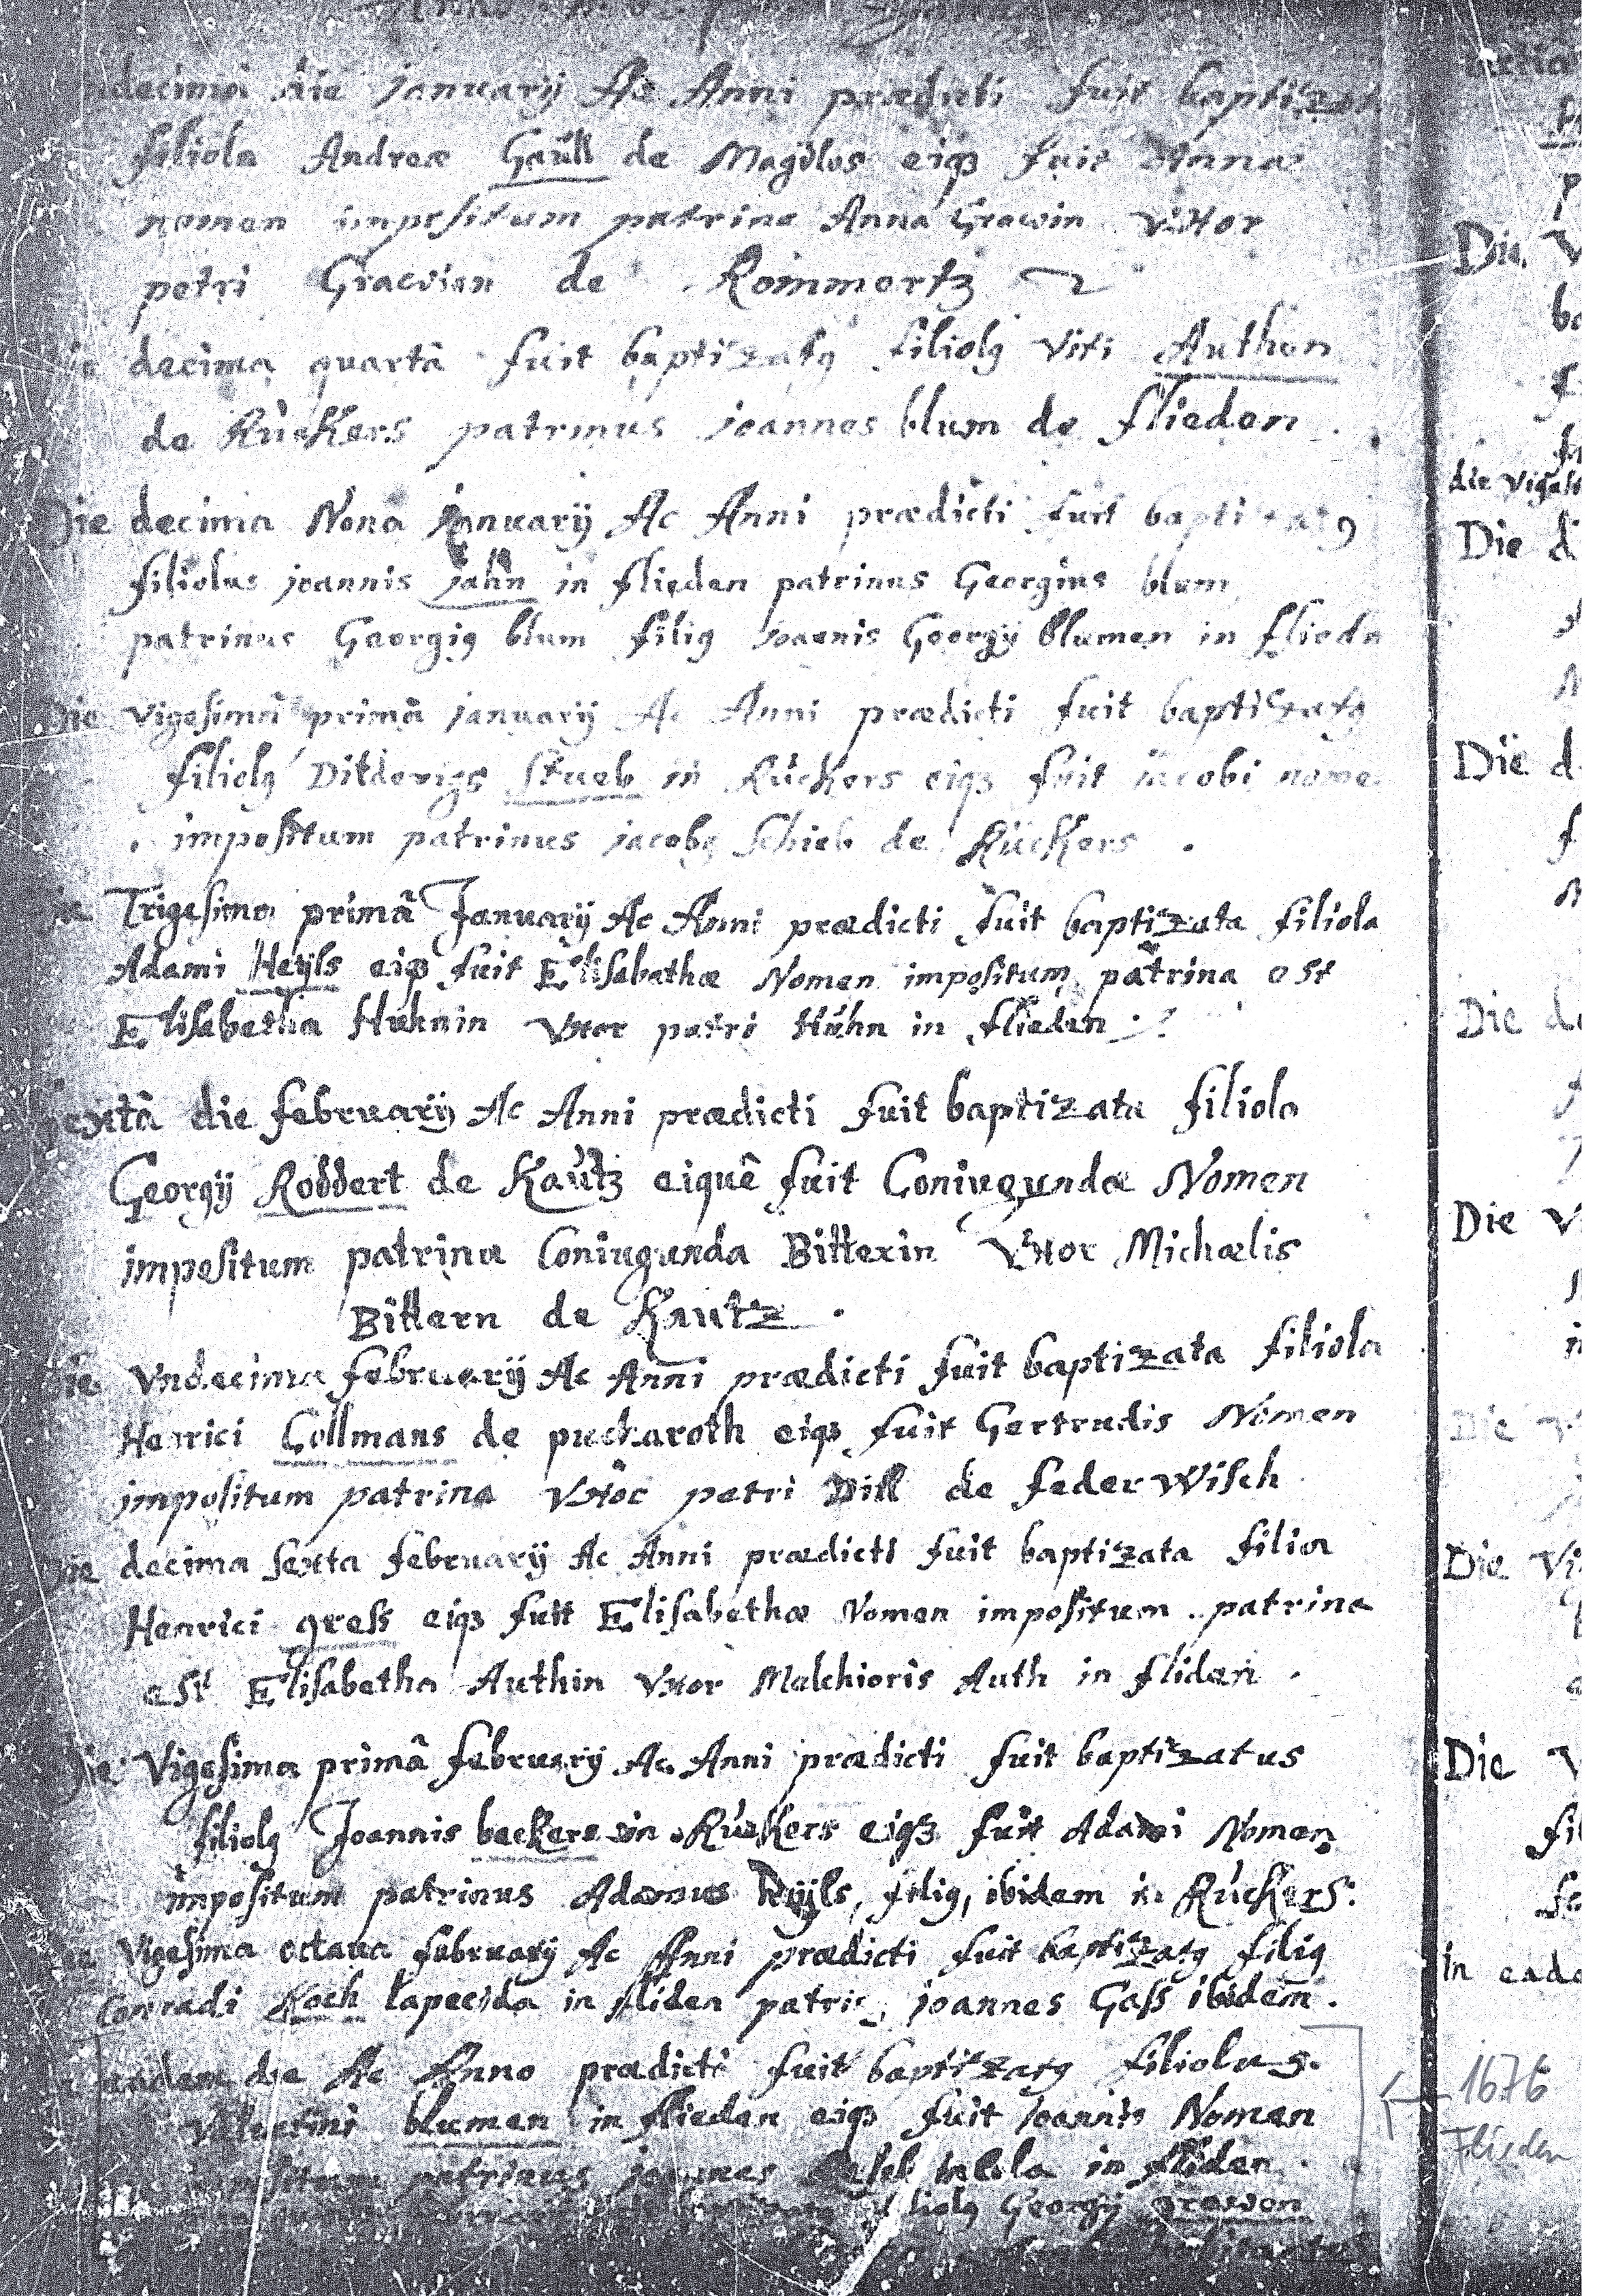 die januarij Ac Anni prædicti fuit baptizata
filiola Andreæ Gaüll de Magdlos eiqz fuit Annæ
nomen impositum patrina Anna Grawin Vxor
petri Grawen de Rommertz
decima quartâ fuit baptizatq filiolq Viti Authen
de Rückers patrinus joannes blum de flieden.
Die decima Nona januarij Ac Anni prædicti fuit baptizatq
filiolus joannis jahn in flieden patrinus Georgius blum
patrinus Georgiq blum filiq joannis Georgij blumen in fliedn
Die Vigesimâ primâ januarij Ac Anni prædicti fuit baptizatq
filiolq stueb in Rückers eiqz fuit jacobi nome
impositum patrinus jacobq Schieb de Rückers.
Trigesima primâ January Ac Anni prædicti fuit baptizata filiola
Adami Heijls eiqz fuit Elisabethæ Nomen impositum patrina est
Elisabetha Huhnin Vxor petri Hühn in flieden.
sextâ die februarij Ac Anni prædicti fuit baptizata filiola
Georgij Roddert de Kaütz eiquê fuit Coniugundæ Nomen
impositum patrina Coniugunda Bitterin Vxor Michaelis
Bittern de Kautz.
Die Vndecima februarij Ac Anni prædicti fuit baptizata filiola
Henrici Collmans de puckaroth eiqz fuit Gertrudis Nomen
impositum patrina Vxor petri Dill de federwisch
Die decima sexta februarij Ac Anni prædicti fuit baptizata filia
Henrici gress eiqz fuit Elisabethæ Nomen impositum. patrina
est Elisabetha Authin Vxor Malchioris Auth in fliden.
Die Vigesima primâ februarij Ac Anni prædicti fuit baptizatus
filiolq Joannis beckers in Rückers eiqz fuit Adami Nomen
impositum patrinus Adamus Heijls, filiq, ibidem in Rückers.
Vigesima octaua februarij Ac Anni prædicti fuit baptizatq filiq
Conradi Koch lapecida in fliden patrinq joannes Gass ibidem.
eadem die Ac Anno prædicti fuit baptizatq filiolus
Valentini blumen in flieden eiqz fuit joannis Nomen
impositum patrinus joannes in fliden.
filiolq Georgij grawen
Die
Die
Die
Die
Die
Die
Die
Die
Die
in
1676
Flieden